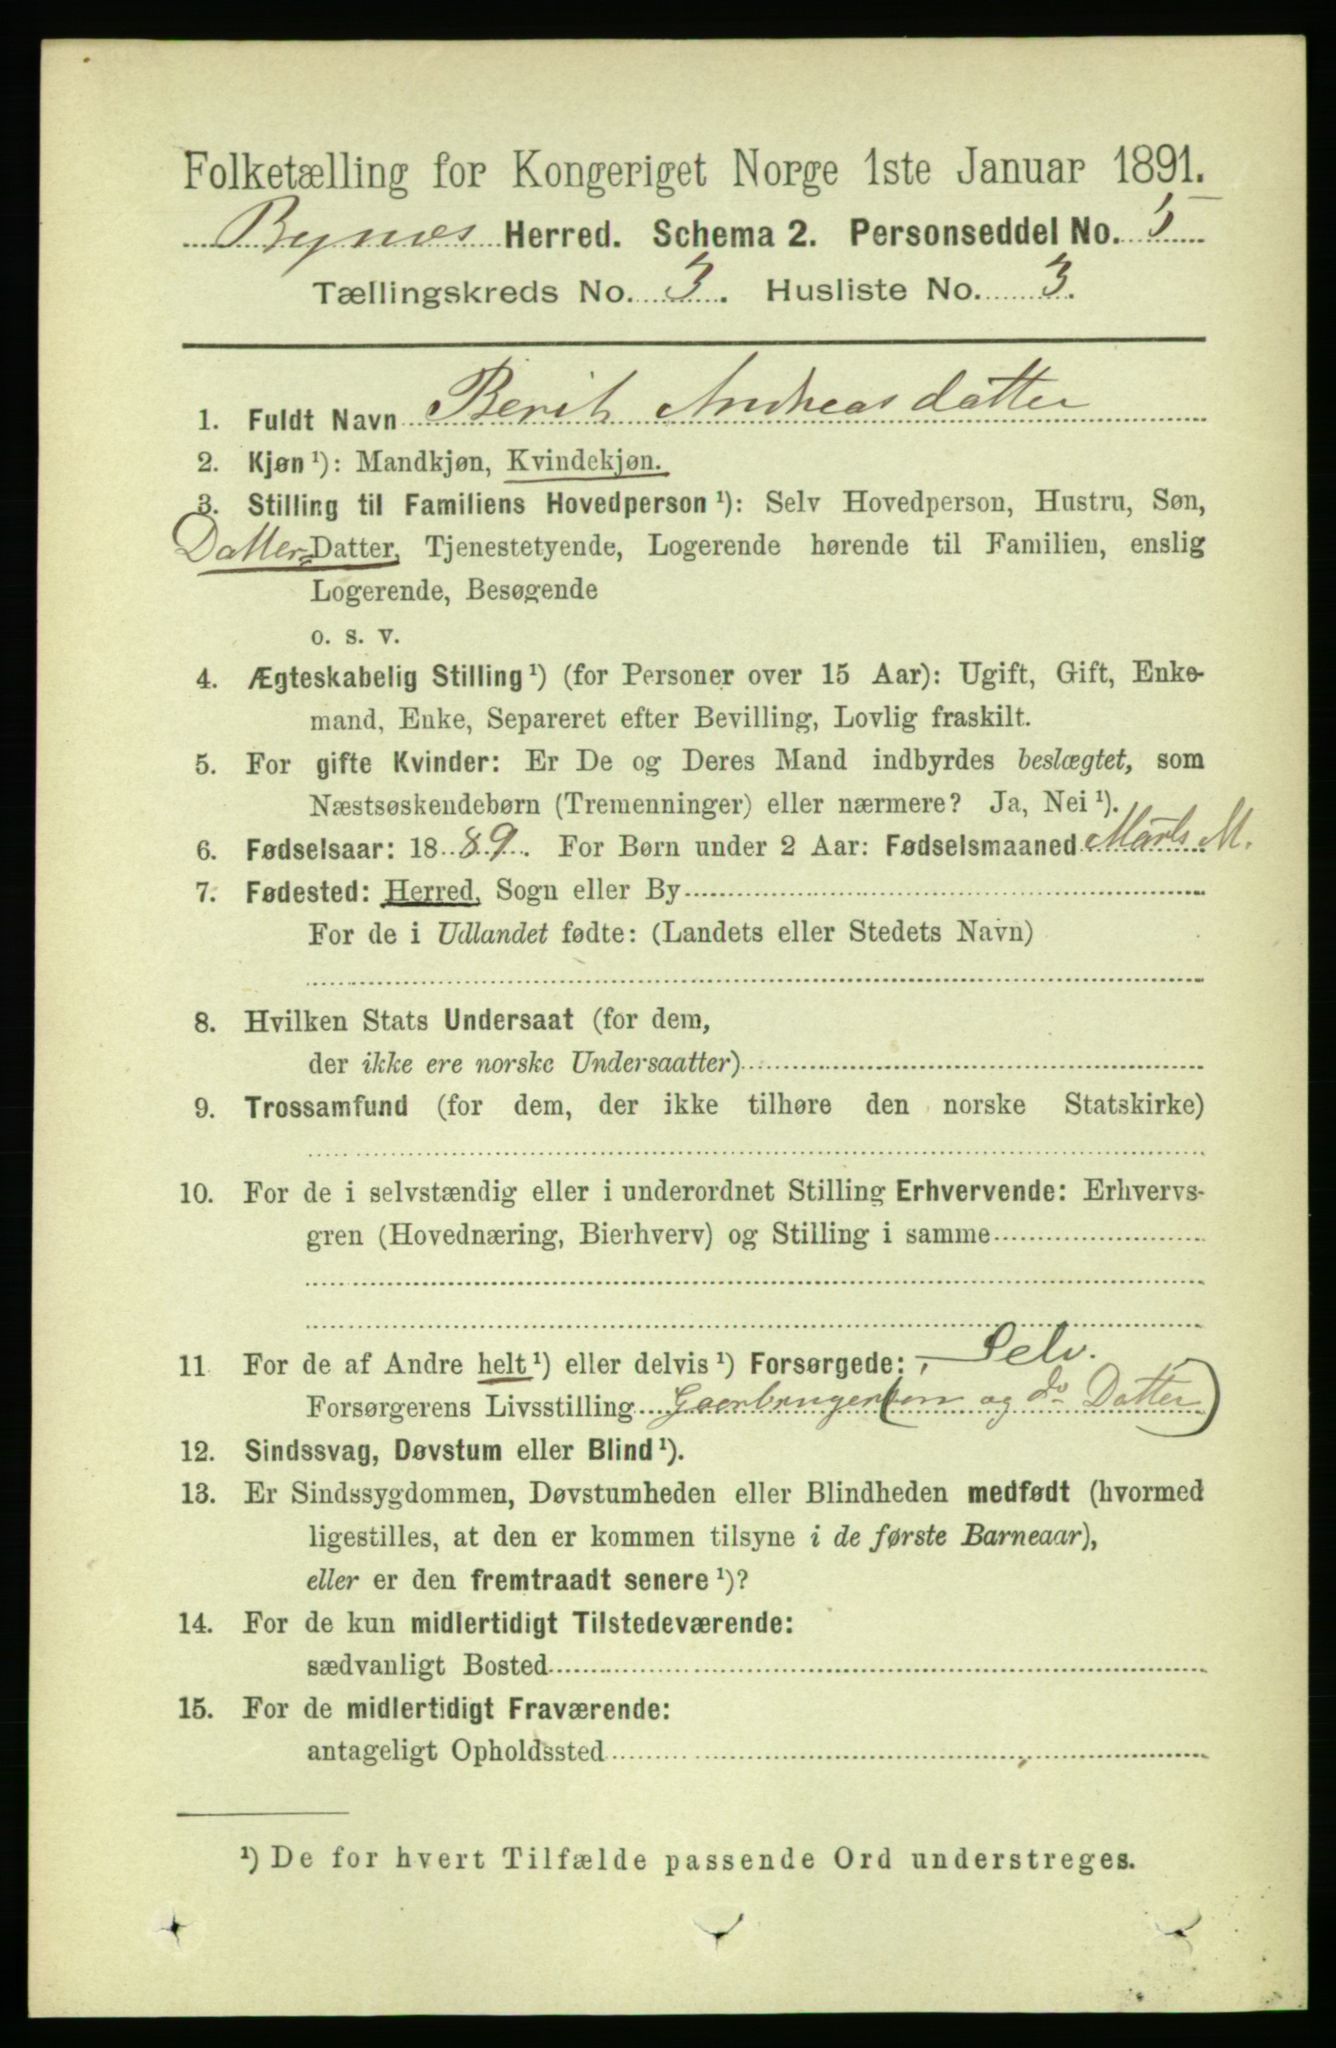 Folketælling for Kongeriget Norge 1ste Januar 1891.
Bynes Herred. Schema 2. Personseddel No. 5
Tællingskreds No. 3. Husliste No. 3.
1. Fuldt Navn Berit Andreasdatter
2. Kjøn ¹): Mandkjøn, Kvindekjøn.
3. Stilling til Familiens Hovedperson ¹): Selv Hovedperson, Hustru, Søn,
Datter-Datter, Tjenestetyende, Logerende hørende til Familien, enslig
Logerende, Besøgende
o. s. v.
4. Ægteskabelig Stilling ¹) (for Personer over 15 Aar): Ugift, Gift, Enke-
mand, Enke, Separeret efter Bevilling, Lovlig fraskilt.
5. For gifte Kvinder: Er De og Deres Mand indbyrdes beslægtet, som
Næstsøskendebørn (Tremenninger) eller nærmere? Ja, Nei ¹).
6. Fødselsaar: 1889. For Børn under 2 Aar: Fødselsmaaned Marts M.
7. Fødested: Herred, Sogn eller By
For de i Udlandet fødte: (Landets eller Stedets Navn)
8. Hvilken Stats Undersaat (for dem,
der ikke ere norske Undersaatter)
9. Trossamfund (for dem, der ikke tilhøre den norske Statskirke)
10. For de i selvstændig eller i underordnet Stilling Erhvervende: Erhvervs-
gren (Hovednæring, Bierhverv) og Stilling i samme
11 For de af Andre helt ¹) eller delvis ¹) Forsørgede: , Selv.
Forsørgerens Livsstilling Gaardbruger og do Datter)
12. Sindssvag, Døvstum eller Blind ¹).
13. Er Sindssygdommen, Døvstumheden eller Blindheden medfødt (hvormed
ligestilles, at den er kommen tilsyne i de første Barneaar),
eller er den fremtraadt senere ¹)?
14. For de kun midlertidigt Tilstedeværende:
sædvanligt Bosted
15. For de midlertidigt Fraværende:
antageligt Opholdssted
¹) De for hvert Tilfælde passende Ord understreges.